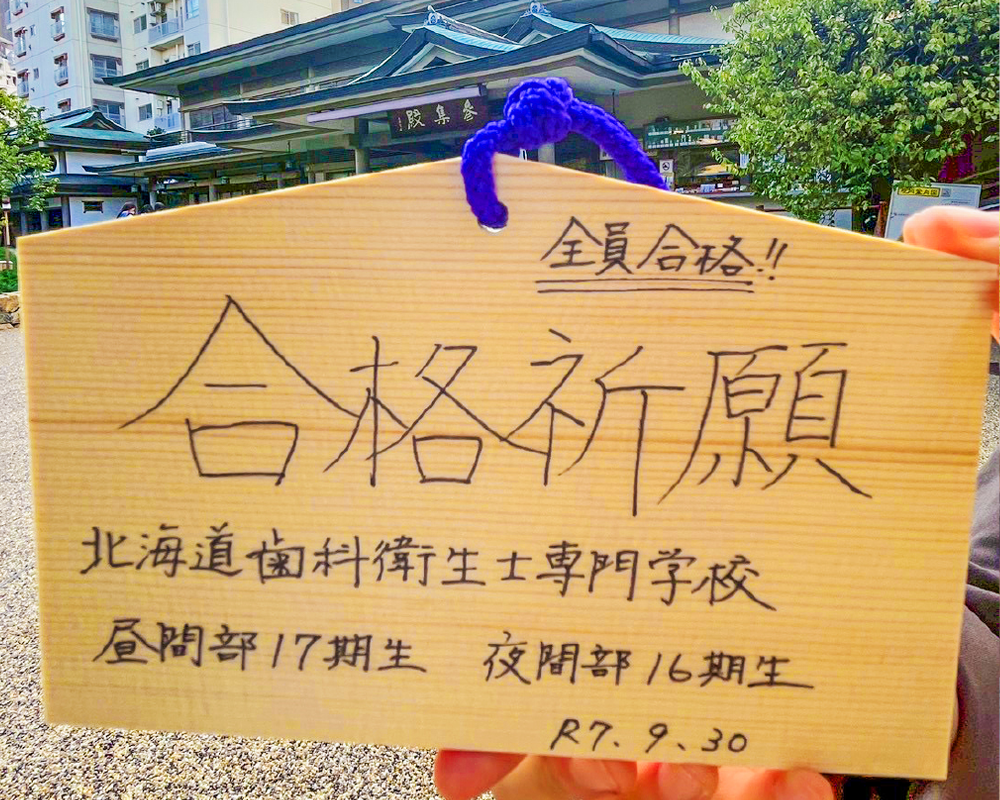 參集殿
全員合格!!
合格祈願
北海道歯科衛生士専門学校
昼間部17期生 夜間部16期生
R7.9.30